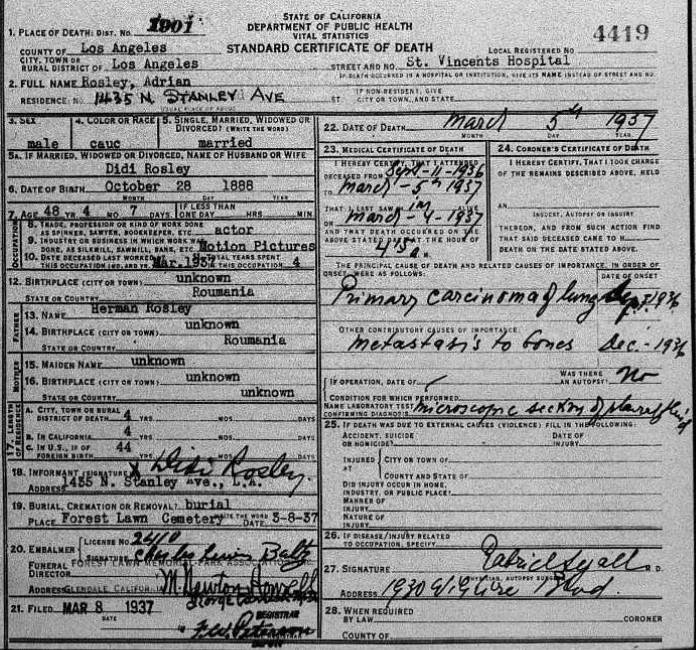 STATE OF CALIFORNIA
DEPARTMENT OF PUBLIC HEALTH
VITAL STATISTICS
STANDARD CERTIFICATE OF DEATH
1. PLACE OF DEATH: DIST. NO. 1901
LOCAL REGISTERED NO. 4419
COUNTY OF Los Angeles
CITY, TOWN OR
RURAL DISTRICT OF Los Angeles
STREET AND NO. St. Vincents Hospital
IF DEATH OCCURRED IN A HOSPITAL OR INSTITUTION, GIVE ITS NAME INSTEAD OF STREET AND NO.
2. FULL NAME Rosley, Adrian
RESIDENCE: NO. 1435 N. STANLEY AVE ST.
IF NON-RESIDENT, GIVE
CITY OR TOWN, AND STATE
USUAL PLACE OF ABODE
3. SEX
male
4. COLOR OR RACE
cauc
5. SINGLE, MARRIED, WIDOWED OR
DIVORCED? (WRITE THE WORD)
married
5A. IF MARRIED, WIDOWED OR DIVORCED, NAME OF HUSBAND OR WIFE
Didi Rosley
6. DATE OF BIRTH October 28 1888
MONTH DAY YEAR
7. AGE 48 YR. 4 MO. 7 DAYS
IF LESS THAN
ONE DAY HRS. MIN.
OCCUPATION
8. TRADE, PROFESSION OR KIND OF WORK DONE
AS SPINNER, SAWYER, BOOKKEEPER, ETC. actor
9. INDUSTRY OR BUSINESS IN WHICH WORK WAS
DONE, AS SILKMILL, SAWMILL, BANK, ETC. Motion Pictures
10. DATE DECEASED LAST WORKED AT
THIS OCCUPATION (MO. AND YR.) Mar.1937
TOTAL YEARS SPENT
IN THIS OCCUPATION 4
12. BIRTHPLACE (CITY OR TOWN) unknown
STATE OR COUNTRY Roumania
FATHER
13. NAME Herman Rosley
14. BIRTHPLACE (CITY OR TOWN) unknown
STATE OR COUNTRY Roumania
MOTHER
15. MAIDEN NAME unknown
16. BIRTHPLACE (CITY OR TOWN) unknown
STATE OR COUNTRY unknown
17. LENGTH OF RESIDENCE
A. CITY, TOWN OR RURAL
DISTRICT OF DEATH 4 YRS. MOS. DAYS
B. IN CALIFORNIA 4 YRS. MOS. DAYS
C. IN U.S., IF OF
FOREIGN BIRTH 44 YRS. MOS. DAYS
18. INFORMANT (SIGNATURE) Didi Rosley.
ADDRESS 1435 N. Stanley Ave., L.A.
19. BURIAL, CREMATION OR REMOVAL? burial
WRITE THE WORD
PLACE Forest Lawn Cemetery DATE 3-8-37
20. EMBALMER
LICENSE NO. 2410
SIGNATURE Charles Lewis Baltz
FUNERAL
DIRECTOR
FOREST LAWN MEMORIAL PARK ASSOCIATION
ADDRESS GLENDALE CALIFORNIA
21. FILED MAR 8 1937
DATE
REGISTRAR
22. DATE OF DEATH March 5th 1937
MONTH DAY YEAR
23. MEDICAL CERTIFICATE OF DEATH
I HEREBY CERTIFY, THAT I ATTENDED
DECEASED FROM Sept-11-1936
TO March-5th 1937
THAT I LAST SAW him ALIVE
ON March-4-1937
AND THAT DEATH OCCURRED ON THE
ABOVE STATED DAY AT THE HOUR OF
24. CORONER'S CERTIFICATE OF DEATH
I HEREBY CERTIFY, THAT I TOOK CHARGE
OF THE REMAINS DESCRIBED ABOVE, HELD
AN
INQUEST, AUTOPSY OR INQUIRY
THEREON, AND FROM SUCH ACTION FIND
THAT SAID DECEASED CAME TO H
DEATH ON THE DATE STATED ABOVE.
THE PRINCIPAL CAUSE OF DEATH AND RELATED CAUSES OF IMPORTANCE, IN ORDER OF
ONSET, WERE AS FOLLOWS:
DATE OF ONSET
Primary carcinoma of lung Sept 1936
OTHER CONTRIBUTORY CAUSES OF IMPORTANCE:
Metastasis to bones Dec.-1936
IF OPERATION, DATE OF
WAS THERE
AN AUTOPSY? No
CONDITION FOR WHICH PERFORMED
NAME LABORATORY TEST
CONFIRMING DIAGNOSIS microscopic section of pleural fluid
25. IF DEATH WAS DUE TO EXTERNAL CAUSES (VIOLENCE) FILL IN THE FOLLOWING:
ACCIDENT, SUICIDE
OR HOMICIDE?
DATE OF
INJURY
INJURED
AT
CITY OR TOWN OF
COUNTY AND STATE OF
DID INJURY OCCUR IN HOME,
INDUSTRY, OR PUBLIC PLACE?
MANNER OF
INJURY
NATURE OF
INJURY
26. IF DISEASE/INJURY RELATED
TO OCCUPATION, SPECIFY
27. SIGNATURE M.D.
PHYSICIAN, AUTOPSY SURGEON
ADDRESS 1930 Wilshire Blvd.
28. WHEN REQUIRED
BY LAW CORONER
COUNTY OF